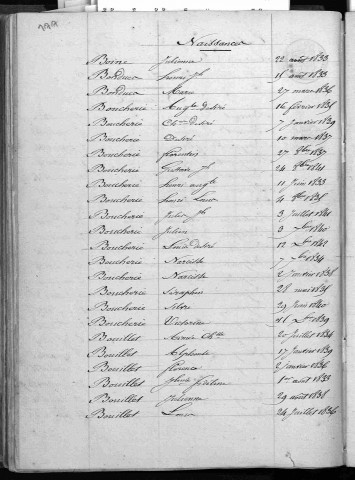 Naissances
Boine Julienne 22 août 1833
Bordeux henri jh 15 août 1833
Bordeux Marie 27 mars 1836
Boucherie Augte désiré 16 février 1831
Boucherie Chles désiré 7 Janvier 1829
Boucherie Désiré 10 mars 1837
Boucherie florentin 27 8bre 1837
Boucherie Gustave jh 24 8bre 1841
Boucherie henri augte 11 Juin 1833
Boucherie henri Louis 4 8bre 1835
Boucherie Jules jh 3 Juillet 1841
Boucherie Julien 9 1840
Boucherie Louis désiré 12 1842
Boucherie Narcisse 7 1834
Boucherie Narcisse 2 Janvier 1838
Boucherie Séraphin 28 mai 1831
Boucherie 29 Juin 1840
Boucherie Victorine 16 1839
Bouillet 20 Juillet 1834
Bouillet Alphonse 17 Janvier 1839
Bouillet florence 2 Janvier 1836
Bouillet fidéline 1er août 1833
Bouillet Julienne 29 août 1838
Bouillet Louis 24 Juillet 1836